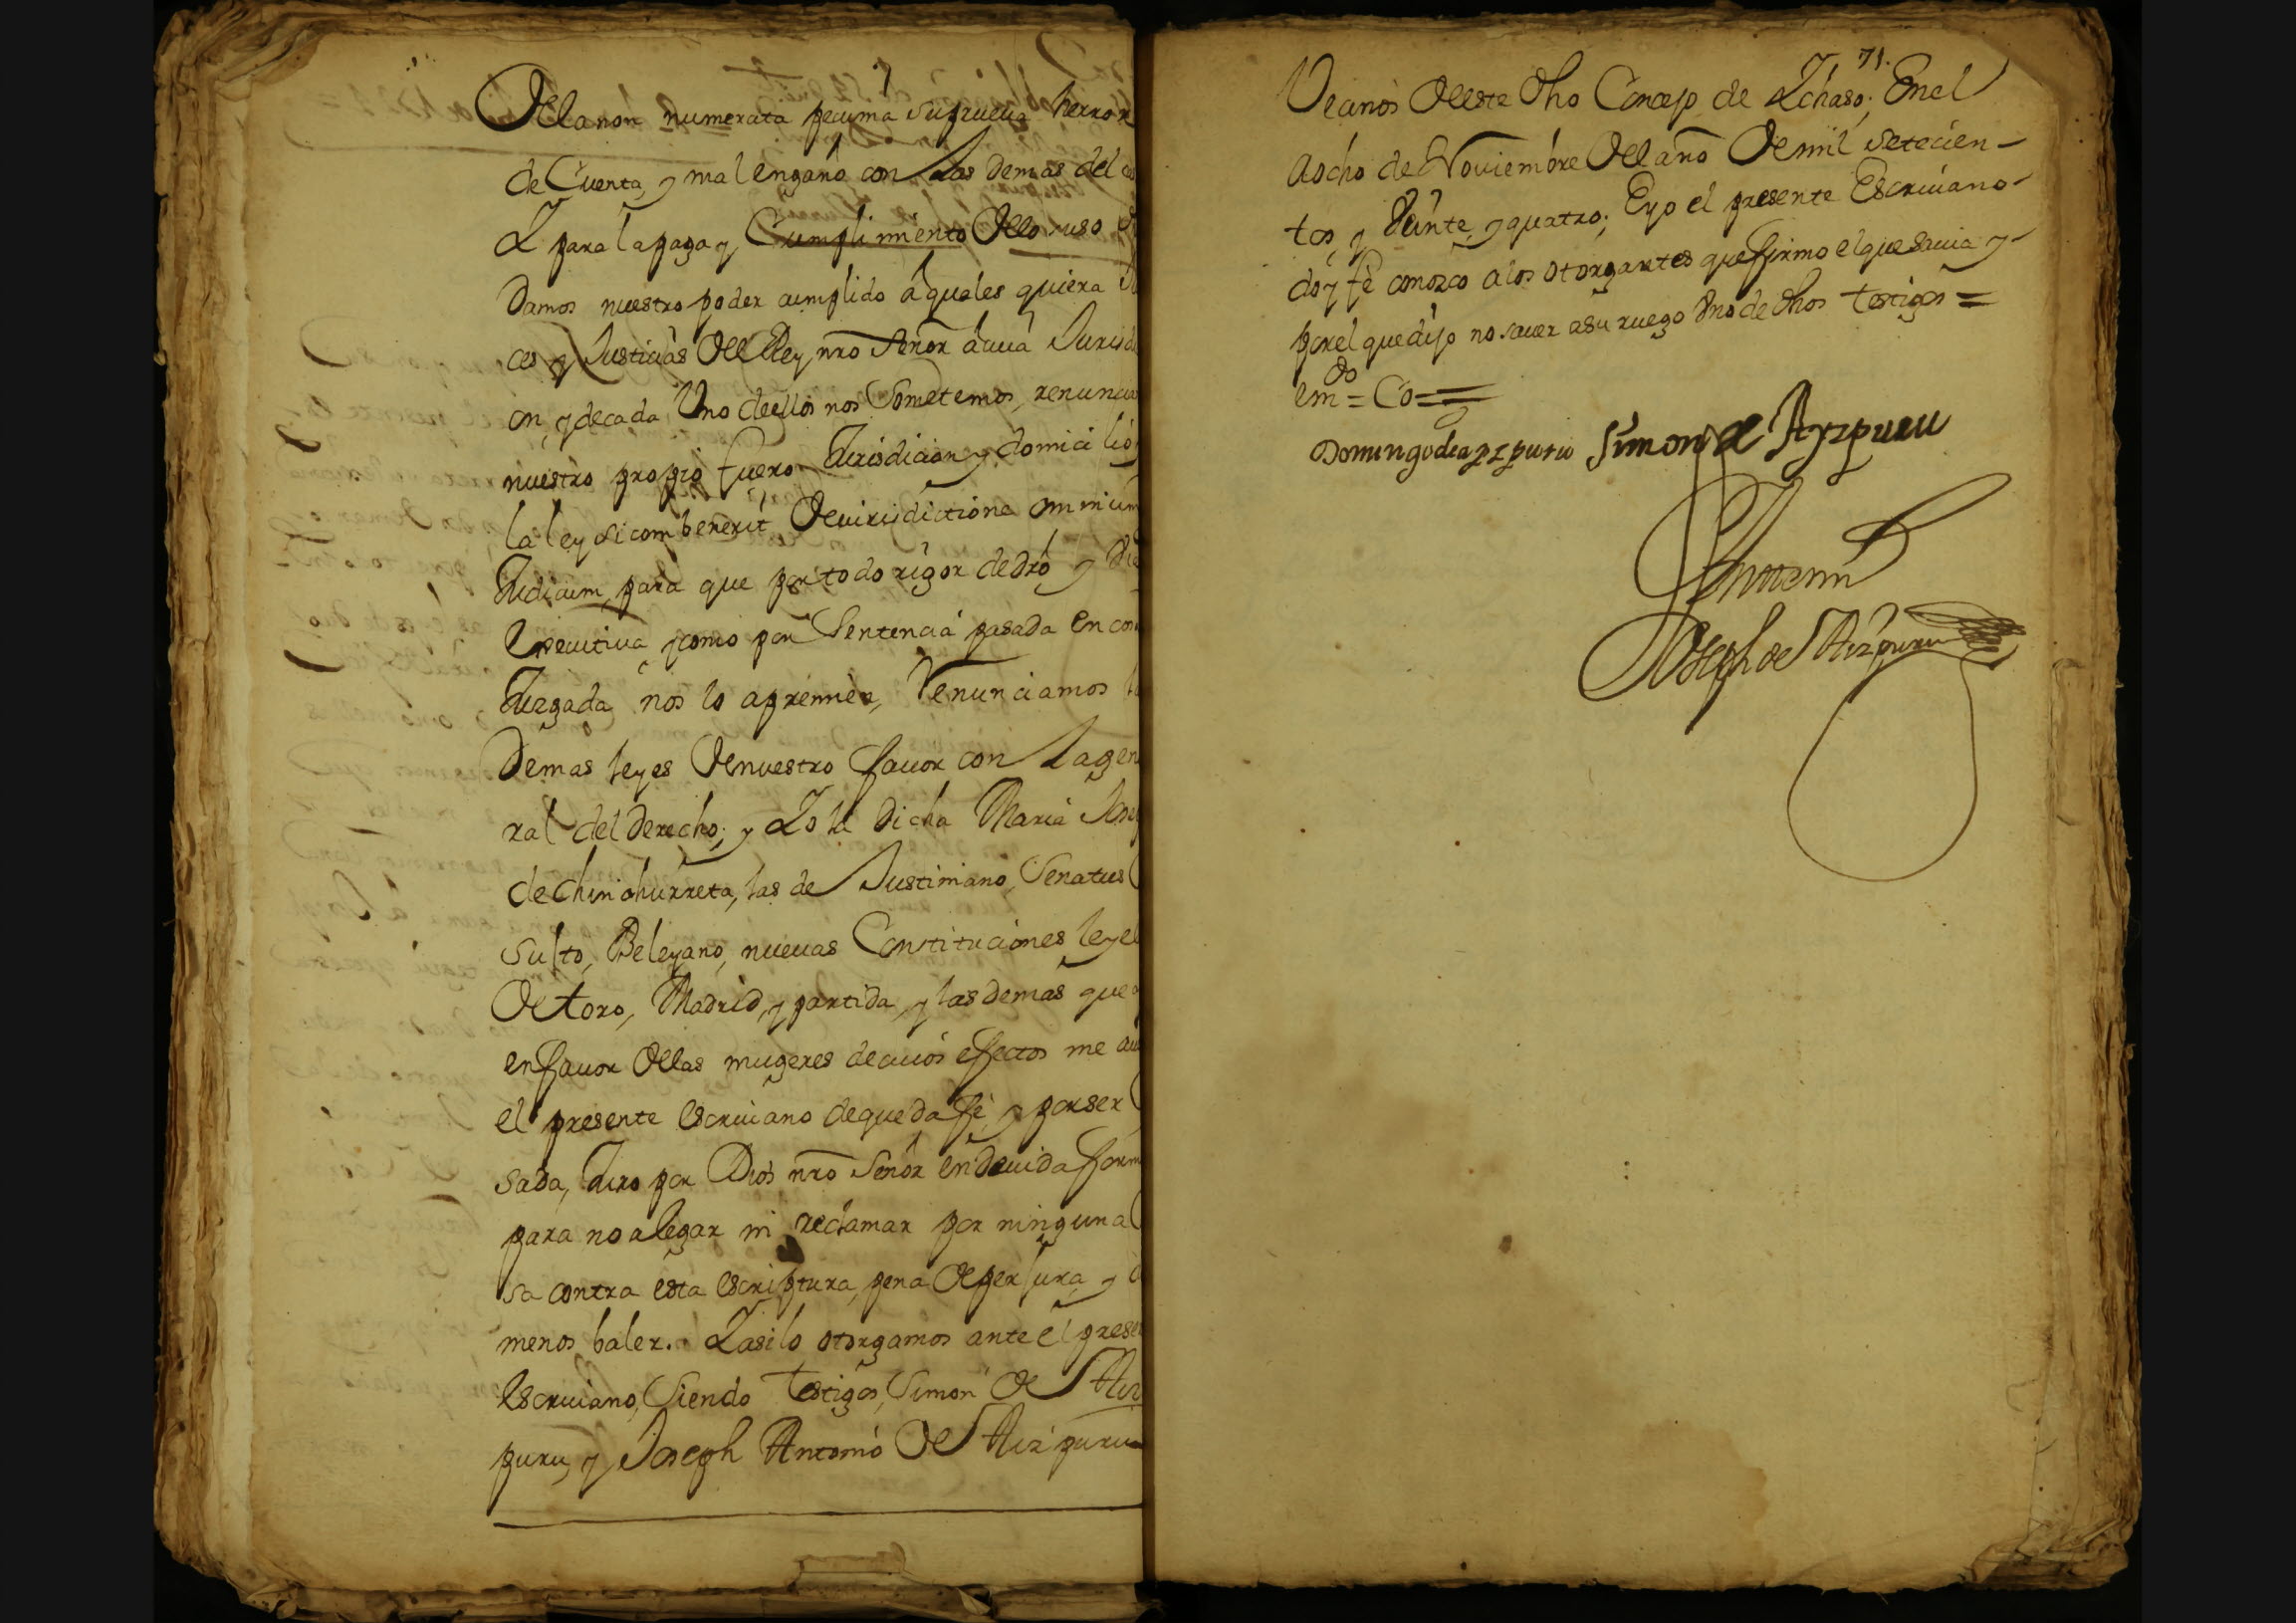 De la non numerata pecunia su prueva herror
de Cuenta, y mal engaño con Las demas del
Y para la paga y Cumplimiento De lo suso
Damos nuestro poder cumplido à quales quiera
ces y Justicias Del Rey nrō Señor à cuia Jurisdi
on, y de cada Uno de ellos nos Sometemos, renuncia
nuestro propio fuero Jurisdicion y domicilio
la ley si combenerit De jurisdictione omnium
Judicum, para que por todo rigor de dró y
executiva como por Sentencia pasada en co
Juzgada nos lo apremien, Renunciamos
Demas leyes De nuestro favor con La gen
ral del Derecho; y Yo la Dicha Maria
de Chinchurreta, las de Justiniano, Senatus
sulto, Beleyano, nuevas Constituciones leyes
De toro, Madrid, y partida, y las demas que
en favor De las mugeres de cuios effectos me
el presente escriuano de que da fè, y por ser
sada, Juro por Dios nrō Señor en devida form
para no alegar ni reclamar por ninguna
sa contra esta escriptura, pena De perjura, y
menos baler. Y asi lo otorgamos ante el prese
escriuano, Siendo testigos, Simon De Aiz
puru, y Joseph Antonio De Aizpuru
71.
Vecinos De este dho Concejo de Ychaso; En el
a ocho de Noviembre Del año De mil setecien-
tos, y Veinte, y quatro; E yo el presente Escriuano-
doy fè conozco a los otorgantes que firmo el que savia y-
por el que dijo no saver a su ruego Uno de dhos testigos =
emdo = Co =
Domingo de azpuru Simon de Ayzpuru
Ante mi
Joseph de Aizpuru